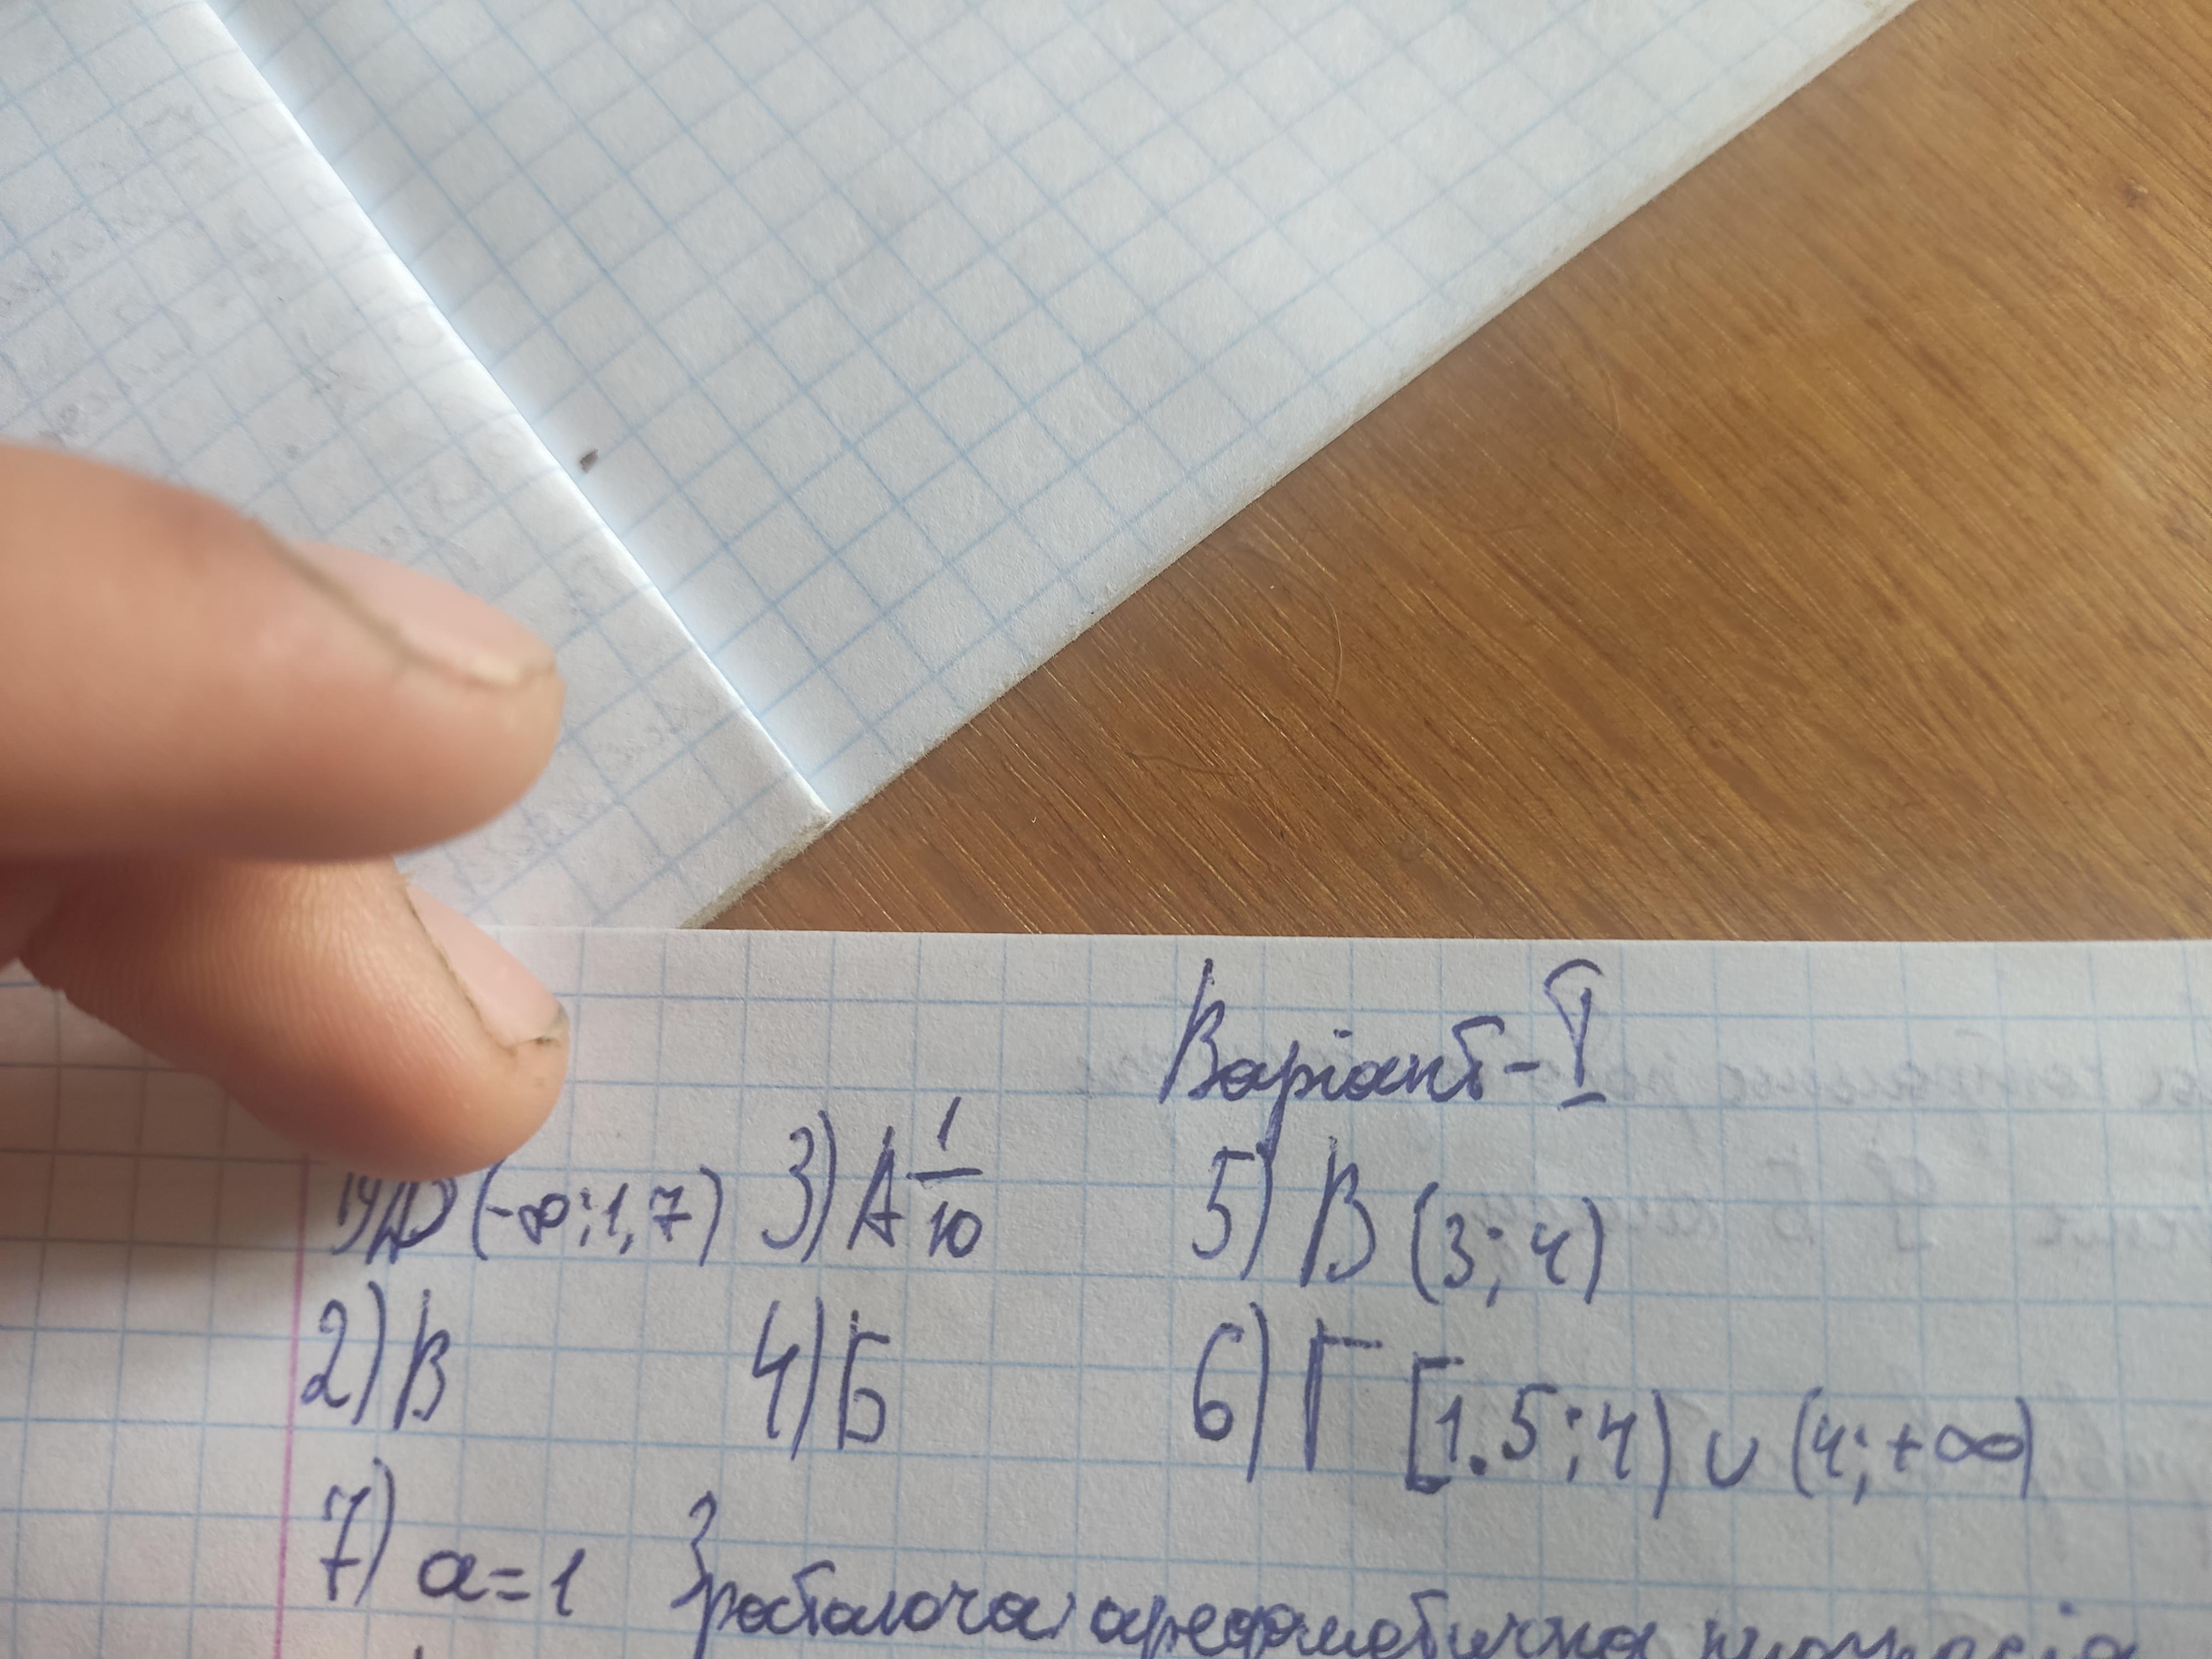 Варіант - I
1) (-∞; 1,7) 3) А 1/10 5) В (3; 4)
2) В 4) Б 6) Г [1.5; 4) ∪ (4; +∞)
7) a = 1 Зростаюча арефметична